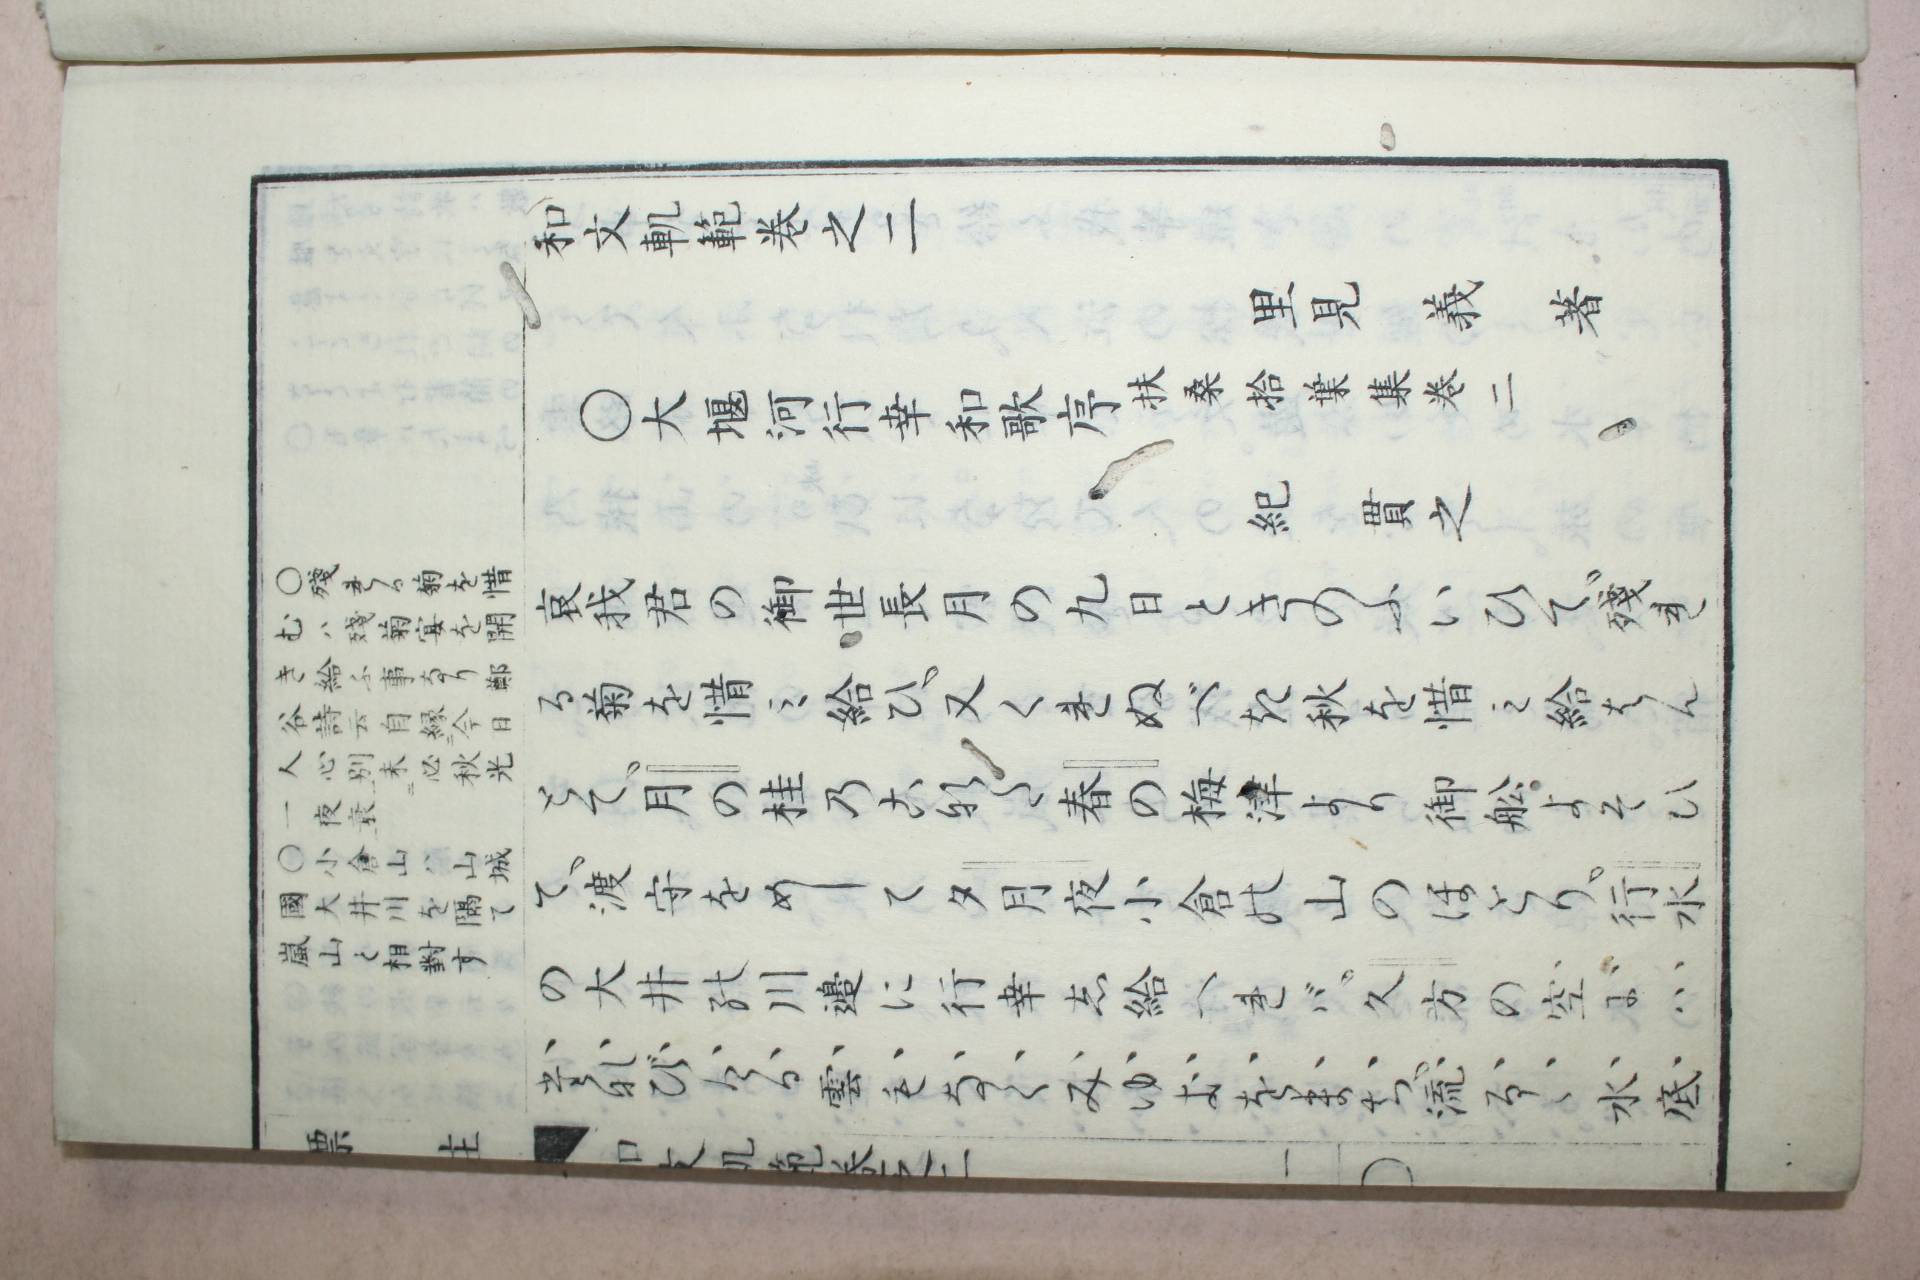 和文軌範巻之二
里見義著
〇大堰河行幸和歌序扶桑拾葉集巻二
紀貫之
哀我君の御世長月の九日ときのふいひて、殘れ
る菊を惜ミ給ひ、又くれぬべき秋を惜ミ給はん
とて、月の桂乃こなた春の梅津より御舩よそひ
て、渡守をめして夕月夜小倉の山のほとり、行水
の大井の川邊に行幸し給へれバ、久方の空にハ
たなびける雲もなくみゆきをまち、流るゝ水底
〇殘れる菊を惜
むハ殘菊宴を開
き給ふ事なり鄭
谷詩云自縁今日
人心別未必秋光
一夜衰
〇小倉山ハ山城
國大井川を隔て
嵐山と相對す
標註
和文軌範巻之二
一